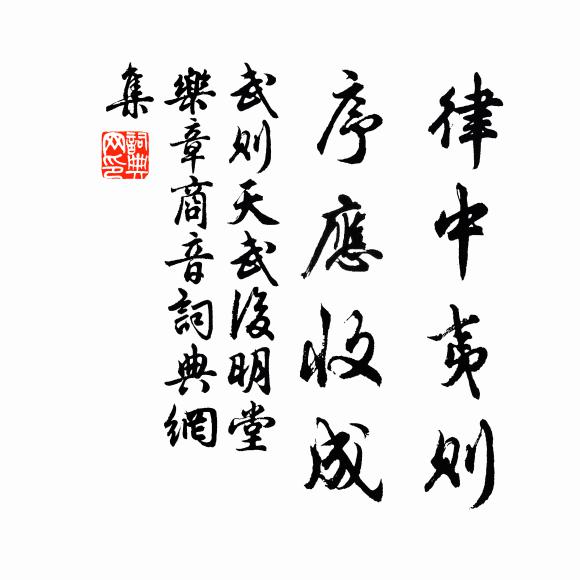 律中夷則
序應收成
武則天武後明堂
樂章商音詞典網
集
詞典網印